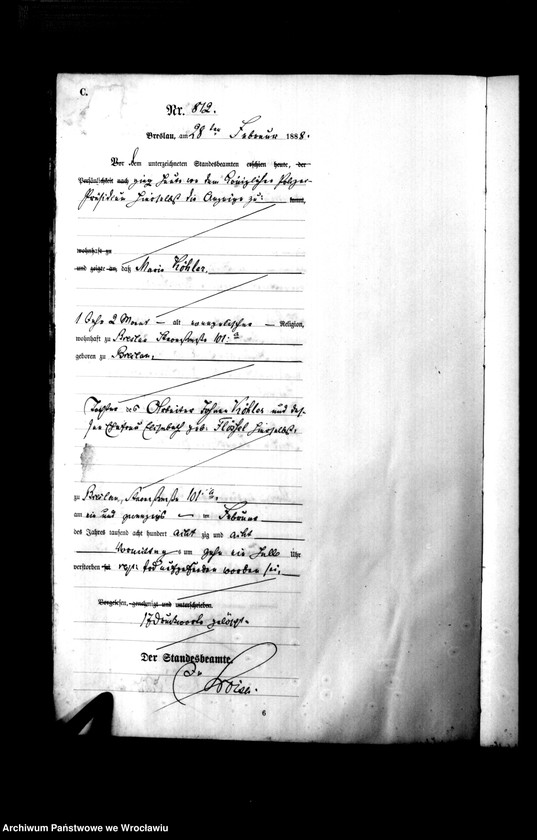 C.
Nr. 812.
Breslau, am 28ten Februar 1888.
Vor dem unterzeichneten Standesbeamten erschien heute, der
Persönlichkeit nach ging heute von dem Königlichen Polizei-
Präsidium hierselbst die Anzeige zu: kannt,
wohnhaft zu
und zeigte an, daß Marie Köhler,
1 Jahr 2 Monat alt evangelischer Religion,
wohnhaft zu Breslau 101
geboren zu Breslau,
Tochter des Arbeiter Köhler und des-
sen Ehefrau Elisabeth geb. Flössel hierselbst,
zu Breslau, 101
am ein und zwanzigsten Februar
des Jahres tausend acht hundert achtzig und acht
Vormittag um zehn ein halb Uhr
verstorben sei worden sei.
Vorgelesen, genehmigt und unterschrieben.
17 Druckworte gelöscht.
Der Standesbeamte.
6
Archiwum Państwowe we Wrocławiu